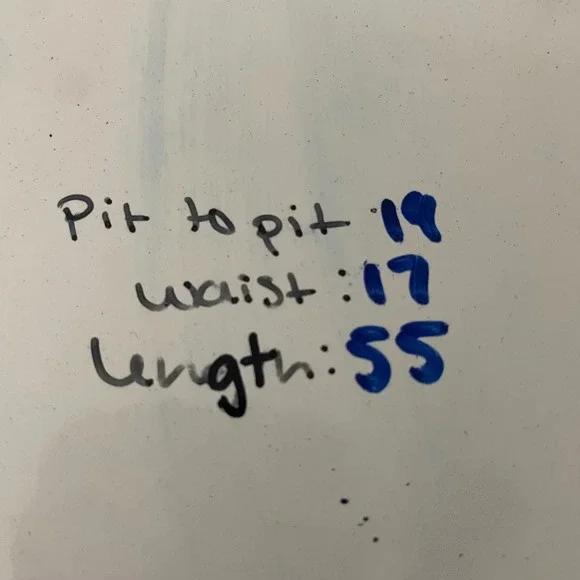 Pit to pit : 19
waist : 17
length : 55